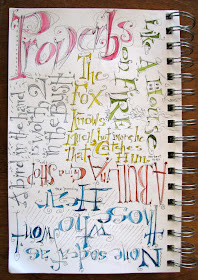 Proverbs
Like A House
on FIRE
The
Fox
knows
much, but more he
that Catches
Him
A bird in the hand
is worth 2
in the Bush
A BULL
in A
SHOP
None so deaf as
those who won't
Hear